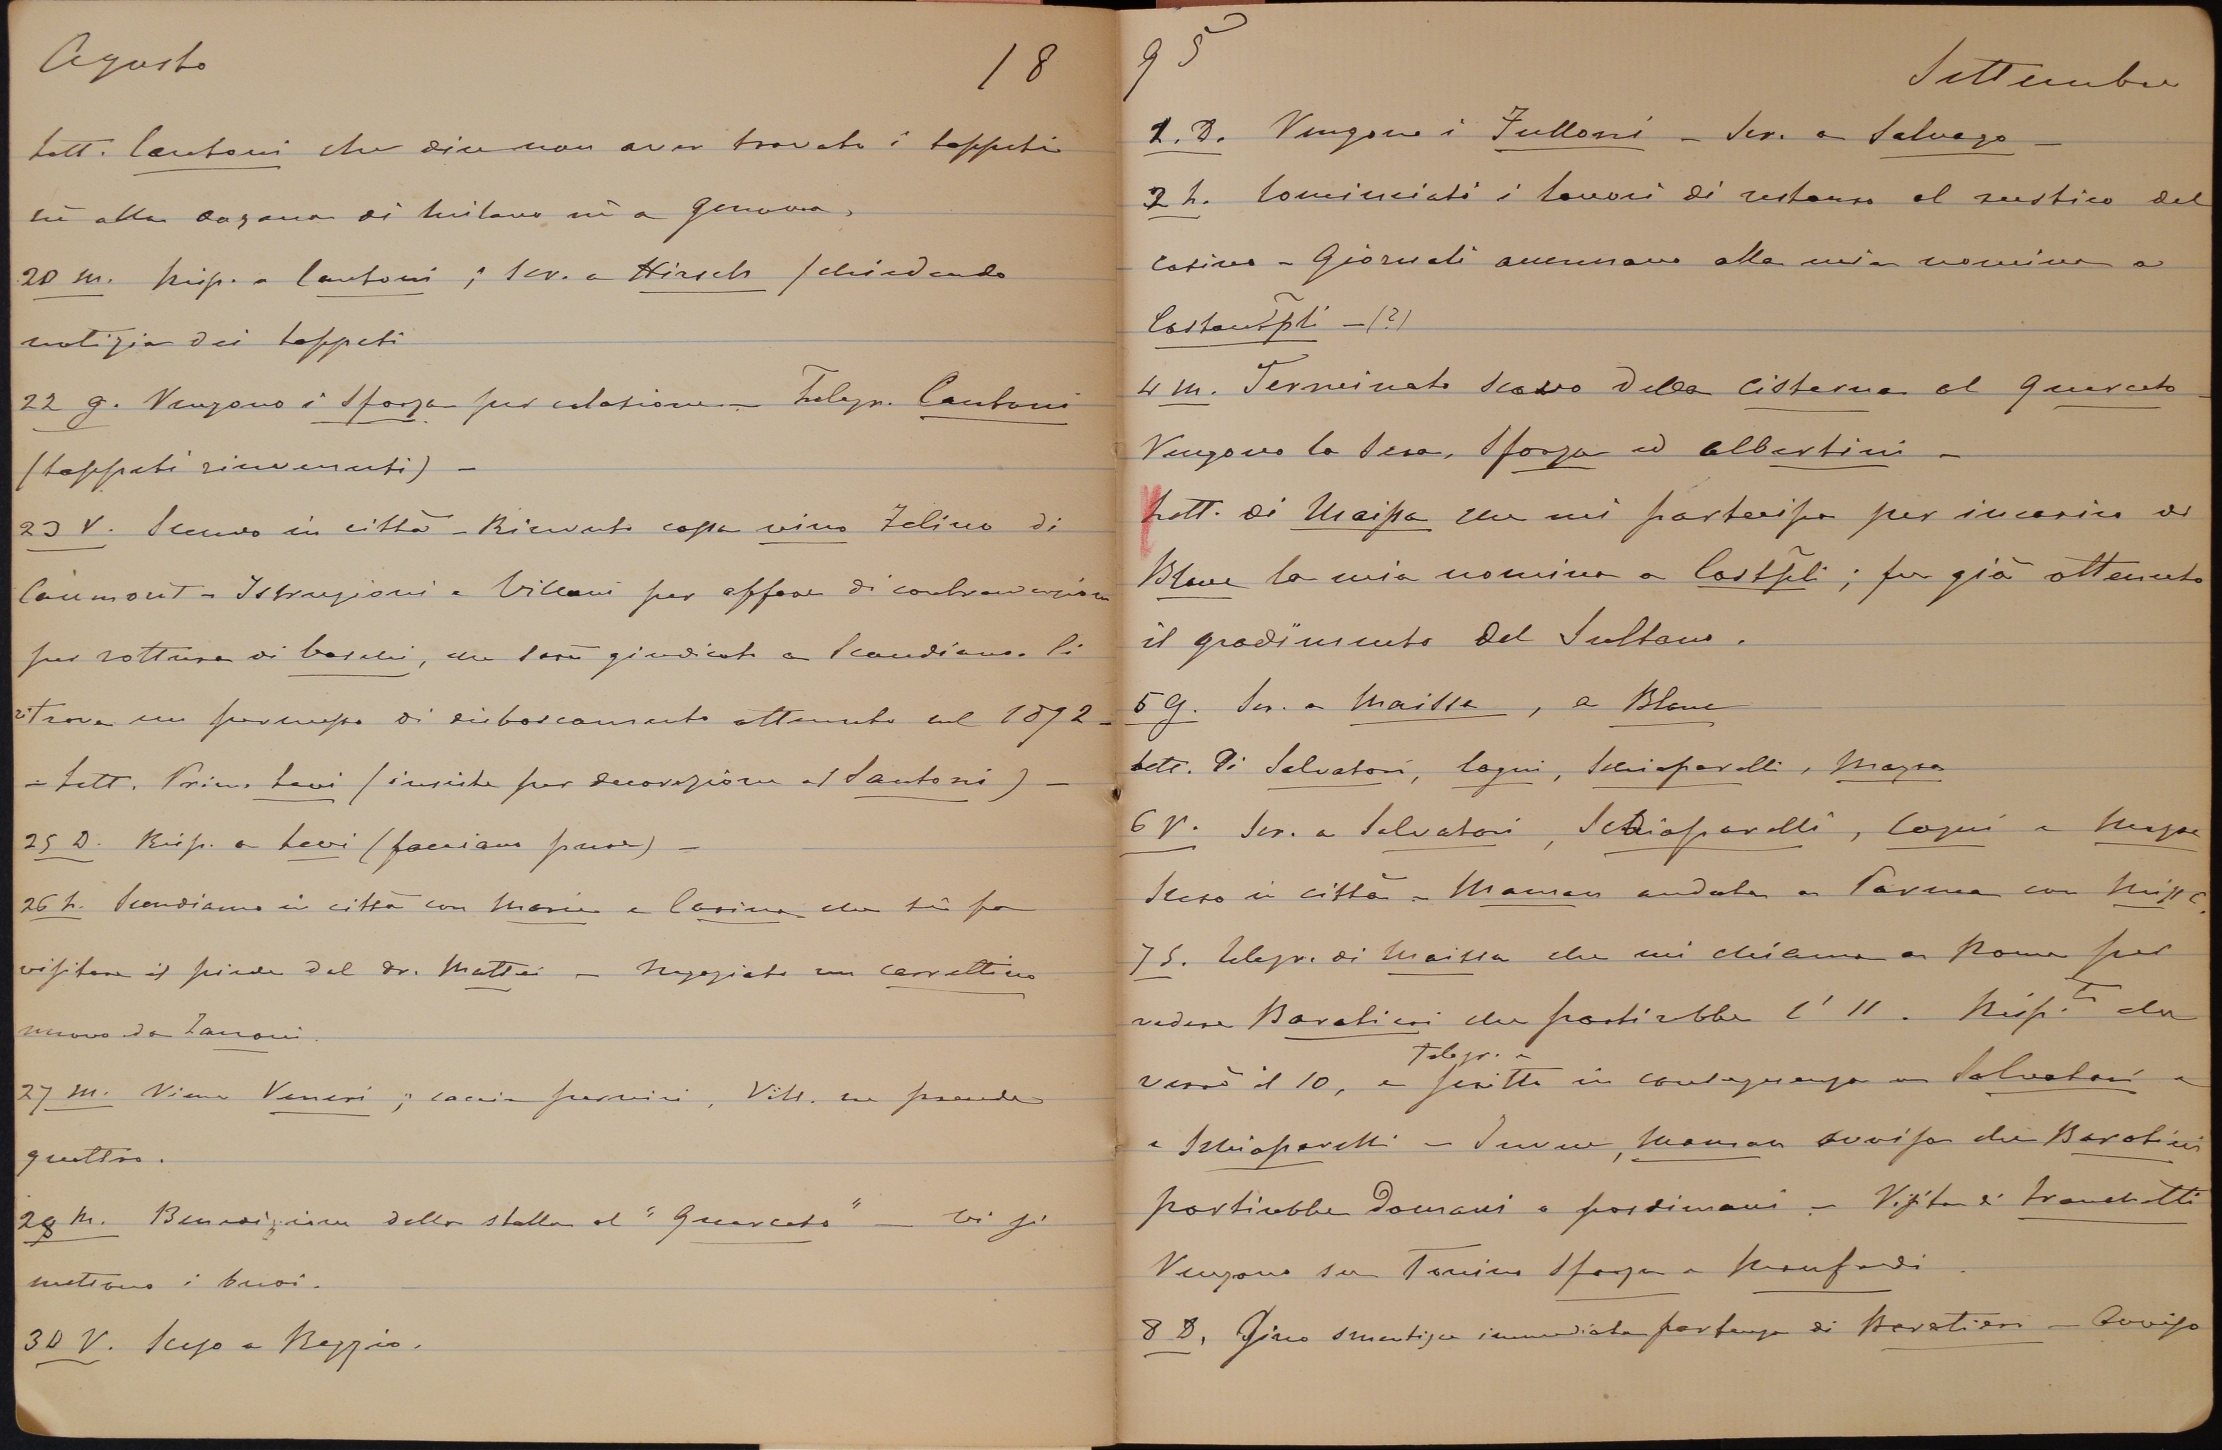 Agosto 18
lett. Cantoni che dice non aver trovato i tappeti
nè alla dogana di Milano nè a Genova.
20 M. Risp. a Cantoni ; scr. a Hirsch / chiedendo
notizia dei tappeti
22 G. Vengono i Sforza per colazione - Telegr. Cantoni
(tappeti rinvenuti) -
23 V. Scendo in città - Ricevuto cassa vino Zelino di
Caumont - Istruzioni a Villani per affare di contravvenzione
per rottura di boschi, che sarà giudicato a Scandiano. Si
ritrova un permesso di disboscamento ottenuto nel 1892 -
- Lett. Prim. Levi (insiste per decorazione al Santoni) -
25 D. Risp. a Levi (facciano pure) -
26 L. Scendiamo in città con Maria e Carina che si fa
visitare il piede dal dr. Mattei - Noleggiato un carrettino
nuovo da Zanoni.
27 M. Viene Veneri ; caccia pernici, Vitt. ne prende
quattro.
28 M. Benedizione della stalla al "Querceto" - vi si
mettono i buoi.
30 V. Sceso a Reggio.
95 Settembre
1. D. Vengono i Fulloni - Scr. a Salvago -
2 L. Cominciati i lavori di restauro al rustico del
casino - Giornali accennano alla mia nomina a
Costantpli - (?)
4 M. Terminato scavo della cisterna al Querceto -
Vengono la sera, Sforza ed Albertini -
Lett. di Maissa che mi partecipa per incarico di
Blanc la mia nomina a Costpli ; fu già ottenuto
il gradimento del Sultano.
5 G. Scr. a Maissa, a Blanc
Lett. di Salvatori, Cogni, Schiaparelli, Mazza
6 V. Scr. a Salvatori, Schiaparelli, Cogni e Mazza
Sceso in città - Maman andata a Parma con Miss C.
7 S. Telegr. di Maissa che mi chiama a Roma per
vedere Baratieri che partirebbe l'11. Risp.to che
verrò il 10, e telegr. a scritto in conseguenza a Salvatori e
a Schiaparelli - Maman avvisa che Baratieri
partirebbe domani o posdimani - Visita di Franchetti
Vengono Tonino Sforza e Manfredi.
8 D. Gino smentisce immediata partenza di Baratieri - Avviso